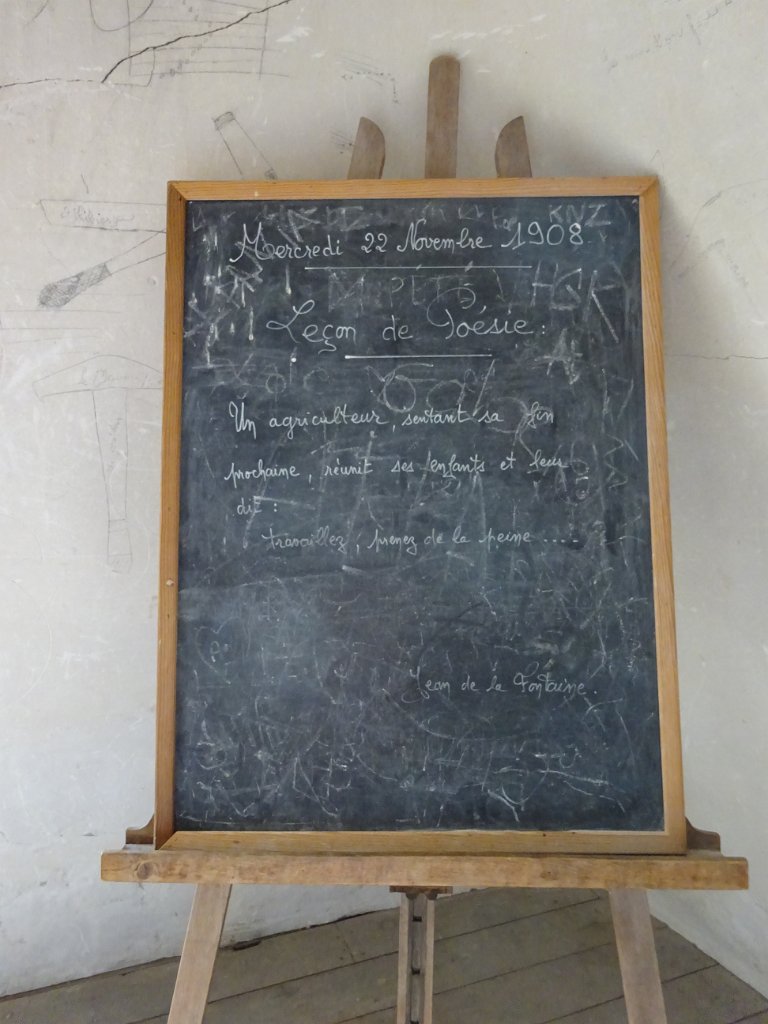 Mercredi 22 Novembre 1908
Leçon de Poésie :
Un agriculteur, sentant sa fin
prochaine, réunit ses enfants et leur
dit :
travaillez, prenez de la peine ....
Jean de la Fontaine.